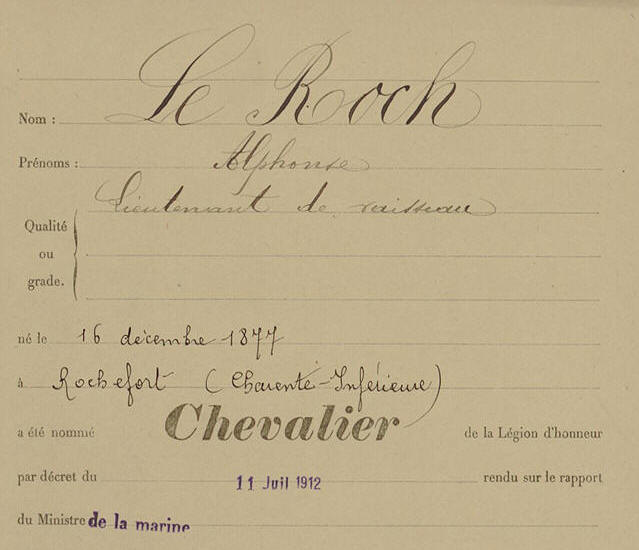 Nom : Le Roch
Prénoms : Alphonse
Lieutenant de vaisseau
Qualité
ou
grade.
né le 16 décembre 1877
à Rochefort (Charente-Inférieure)
a été nommé Chevalier de la Légion d'honneur
par décret du 11 Juil 1912 rendu sur le rapport
du Ministre de la marine